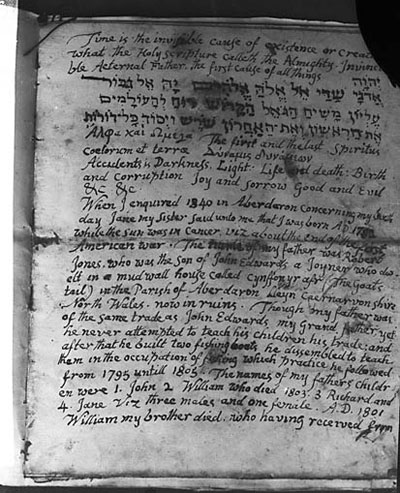 Time is the invisible cause of existence or Creat
what the Holy Scripture calleth the Almighty Invisi
ble Aeternal Father. the first cause of all things
יהוה
אדני שדי אל אלה אלהים יה אל גבור
עליון משיח הגואל הקדוש
את הראשון ואת האחרון שדי ויסוד כל דורות
Αλφα και Ωμεγα The first and the last Spiritus
coelorum et terrae Δυναμις δυναμεων
Accidents is Darkness. Light. Life and death: Birth
and corruption Joy and sorrow Good and Evil
&c &c
When I enquired 1840 in Aberdaron concerning my birth
day Jane my Sister said unto me that I was born AD
while the Sun was in Cancer. viz about the end of the
American war. The name of my father was Robert
Jones, who was the Son of John Edwards a Joyner who dw
elt in a mud wall house called cynffonyr afr (The Goats
tail) in the Parish of Aberdaron Lleyn Caernarvonshire
North Wales. now in ruins. Though my father was
of the same trade as John Edwards my Grand father yet
he never attempted to teach his children his trade; and
after that he built two fishing boats he dissembled to teach
them in the occupation of fishing which practice he followed
from 1795 untill 1805. The names of my fathers childr
en were 1. John 2 William who died 1803. 3 Richard and
4. Jane Viz three males and one female. A.D. 1801
William my brother died. who having received from